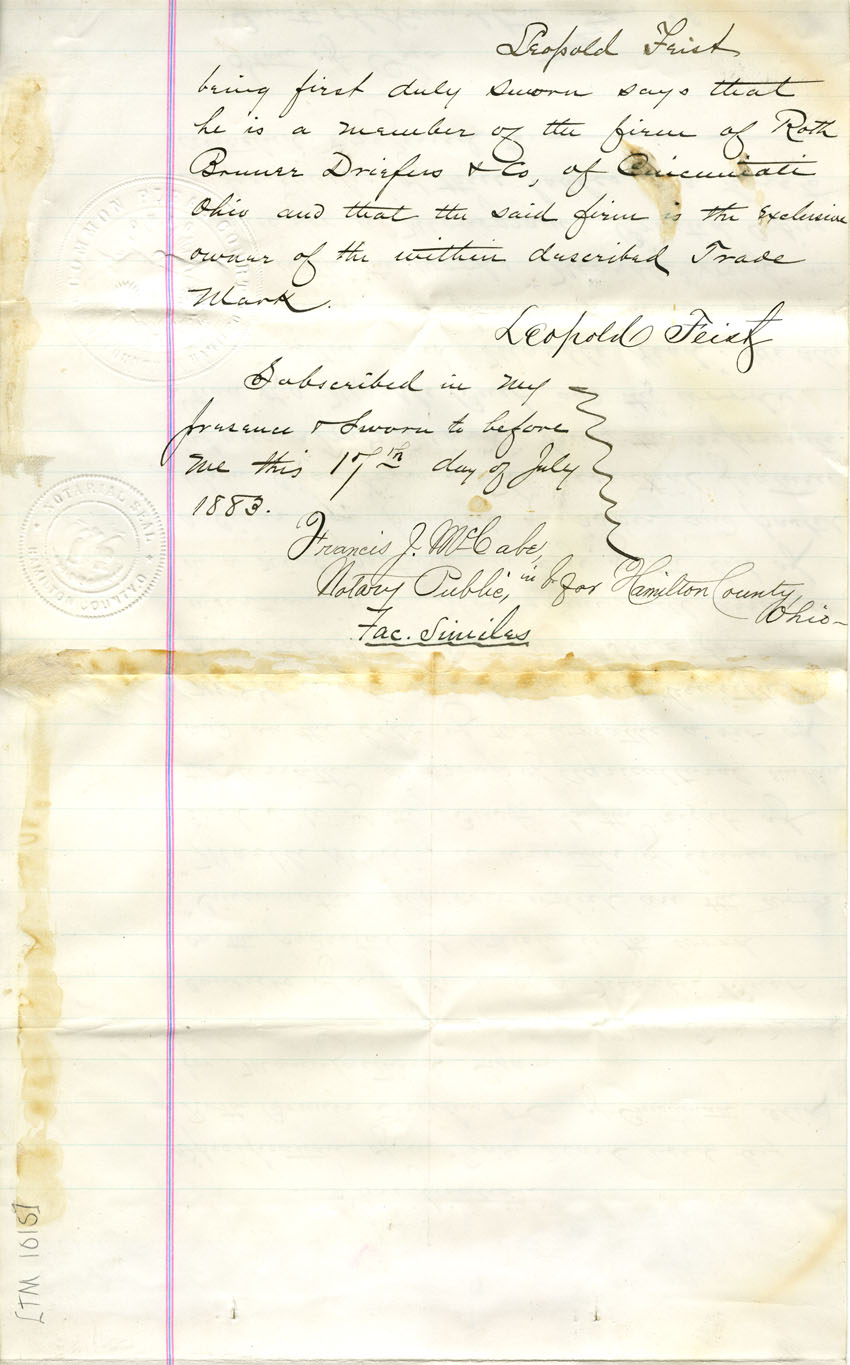 Leopold Feist
being first duly sworn says that
he is a member of the firm of Roth
Bruner Driefus & Co, of Cincinnati
Ohio and that the said firm is the exclusive
owner of the within described Trade
Mark.
Leopold Feist
Subscribed in my
presence & Sworn to before
me this 17th day of July
1883.
Francis J. McCabe,
Notary Public, in & for Hamilton County,
Ohio-
Fac. Similes
COMMON PLEAS
NOTARIAL SEAL
HAMILTON COUNTY O.
[TM 1015]